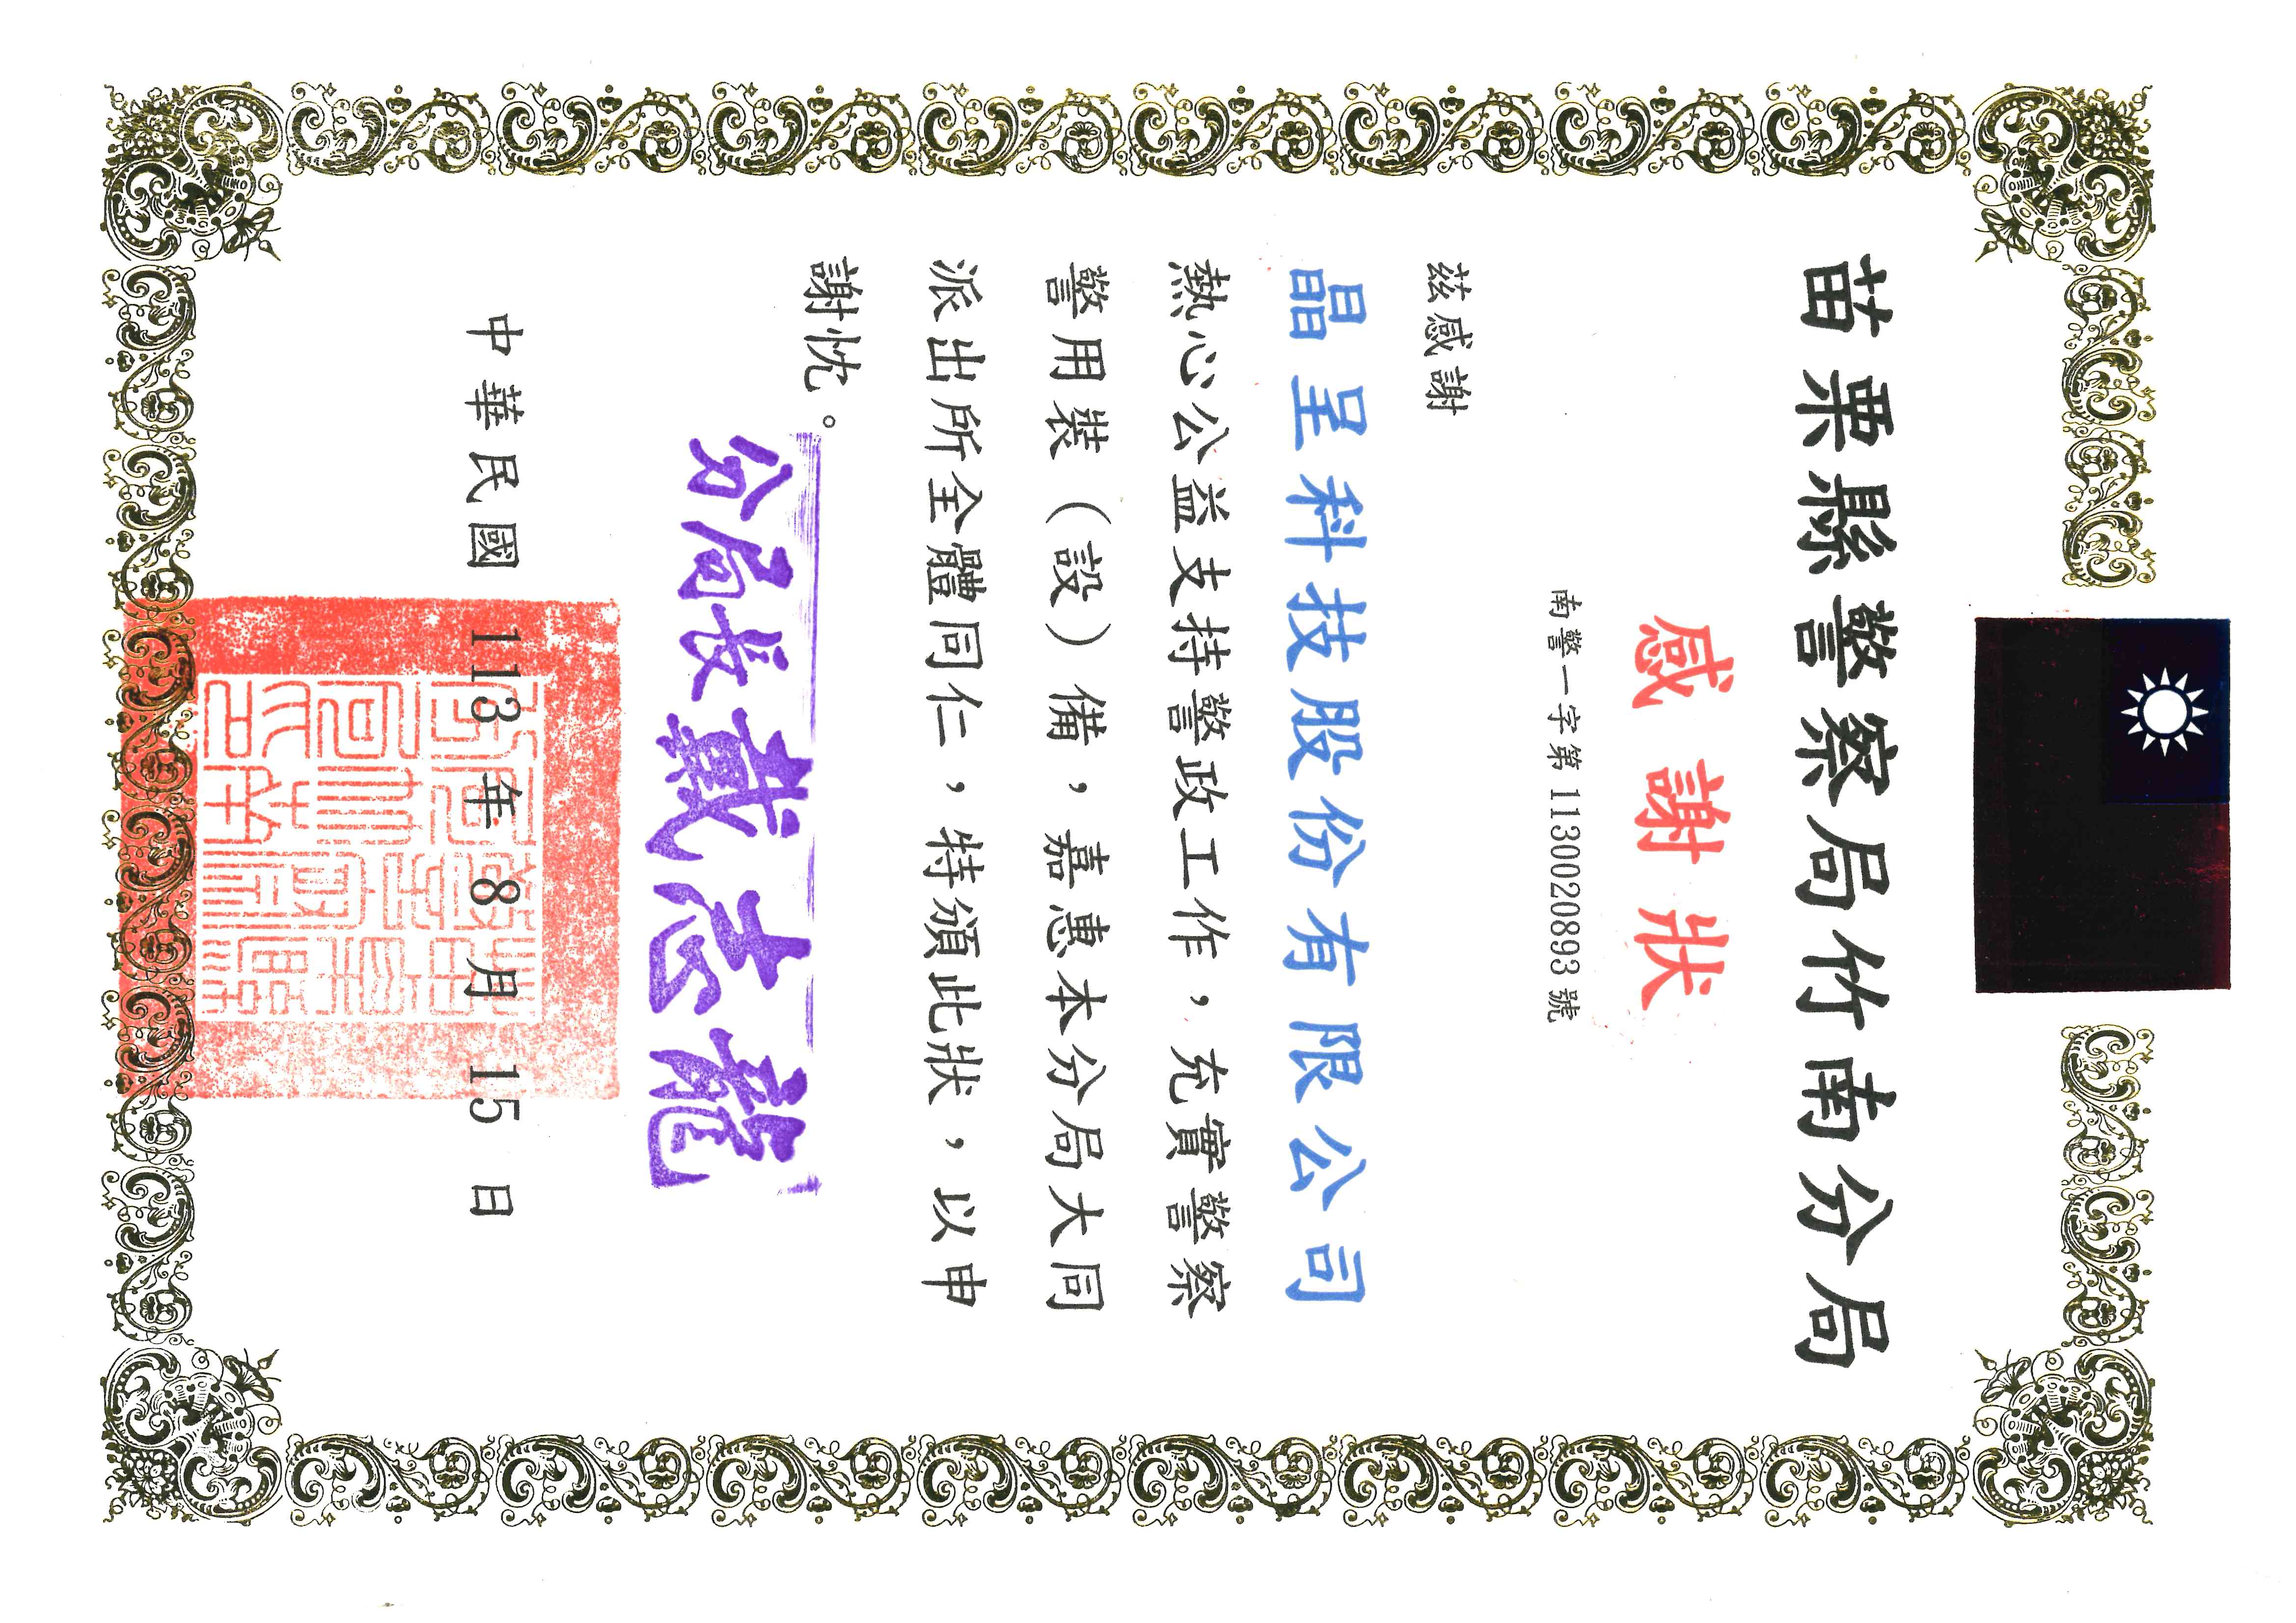 苗栗縣警察局竹南分局
感謝狀
南警一字第1130020893號
茲感謝
晶呈科技股份有限公司
熱心公益支持警政工作，充實警察
警用裝（設）備，嘉惠本分局大同
派出所全體同仁，特頒此狀，以申
謝忱。
分局長戴志龍
中華民國 113 年 8 月 15 日